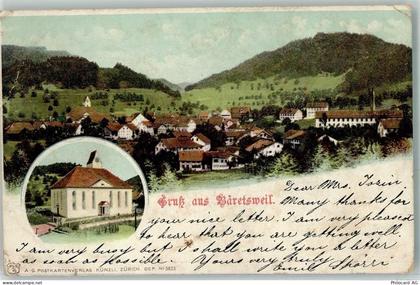 Gruß aus Bäretsweil.
Dear Mrs.
Many thanks for
your nice letter. I am very pleased
to hear that you are getting well.
I am very busy but I shall write you a letter
as soon as is possible. Yours very truly
Emil
A.G. POSTKARTENVERLAG KÜNZLI, ZÜRICH. DEP. No 3823